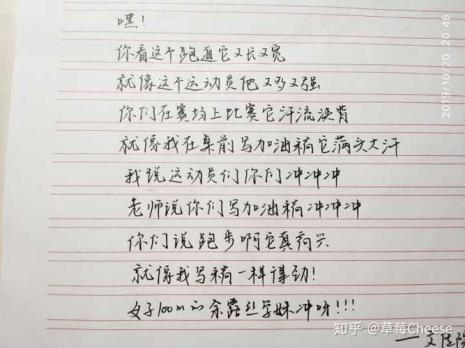 嘿!
你看这个跑道它又长又宽
就像这个运动员他又多又强
你们在赛场上比赛它汗流浃背
就像我在桌前写加油稿它满头大汗
我说运动员们你们冲冲冲
老师说你们写加油稿冲冲冲
你们说跑步啊它真高兴
就像我写稿一样得劲!
女子100m的余露丝学妹冲呀!!!
2019/10/20 20:46
知乎 @草莓Cheese